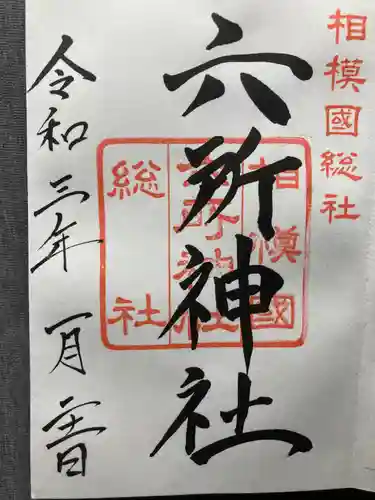 相模國総社
六所神社
相模國
六所神社
総社
令和三年 一月 日